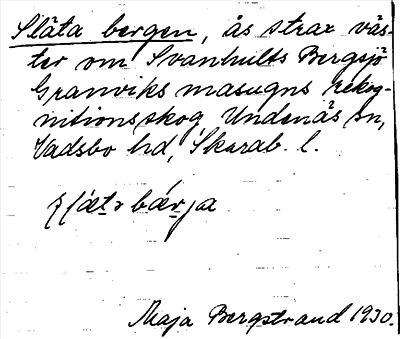 Släta bergen, ås strax väs-
ter om Svanhults Bergsjö
Granviks masugns rekog-
nitionsskog Undenäs sn,
Vadsbo hd, Skarab. l.
Maja Bergstrand 1930.